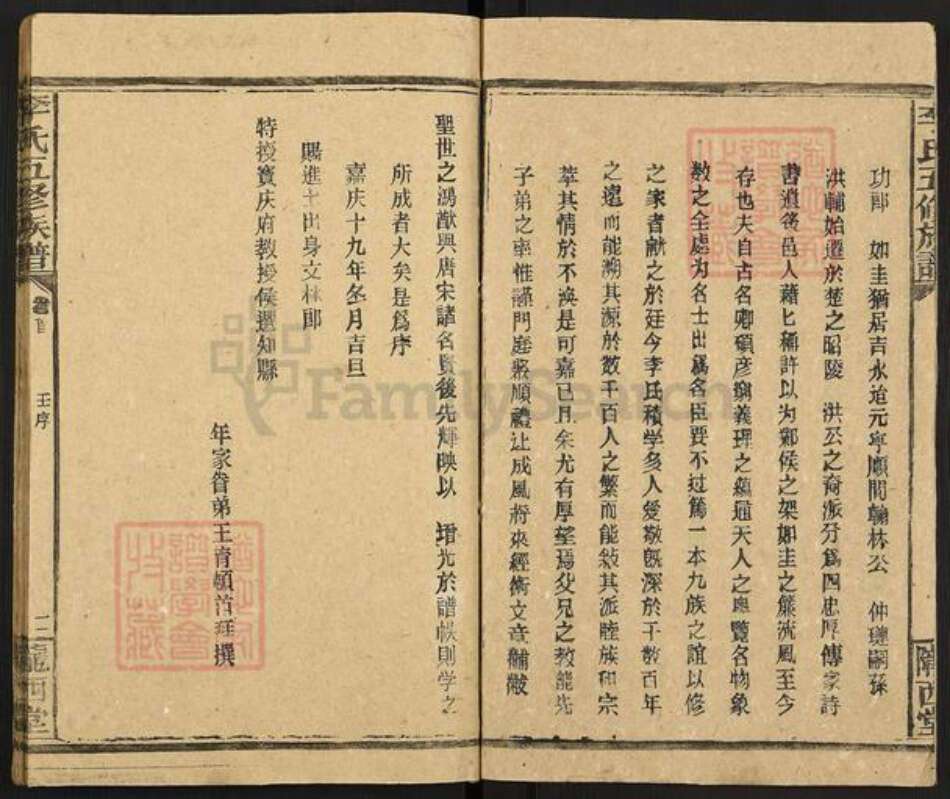 李氏五修族譜
隴西堂
功郎 如圭猶居吉永迨元寧順間翰林公 仲璉嗣孫
洪輔始遷於楚之昭陵 洪公之裔派分爲四忠厚傳家詩
書道後邑人藉匕稱許以为鄴侯之架如圭之簾流風至今
存也夫自古名卿碩彦窮義理之蘊通天人之奥覽名物象
数之全處为名士出爲名臣要不过篤一本九族之誼以修
之家者献之於廷今李氏積学多人爱敬旣深於千数百年
之遠而能溯其源於数千百人之繁而能敍其派睦族和宗
萃其情於不渙是可嘉已且余尤有厚望焉父兄之教能先
子弟之率惟謹門庭素順禮让成風将來經術文章黼黻
聖世之鴻猷與唐宋諸名賢後先輝映以 增光於譜帙則学之
所成者大矣是爲序
嘉庆十九年冬月吉旦
賜進士出身文林郎
特授寶庆府教授候選知縣
年家眷弟王育 撰
李氏五修族譜
卷首
王序
三
隴西堂
FamilySearch